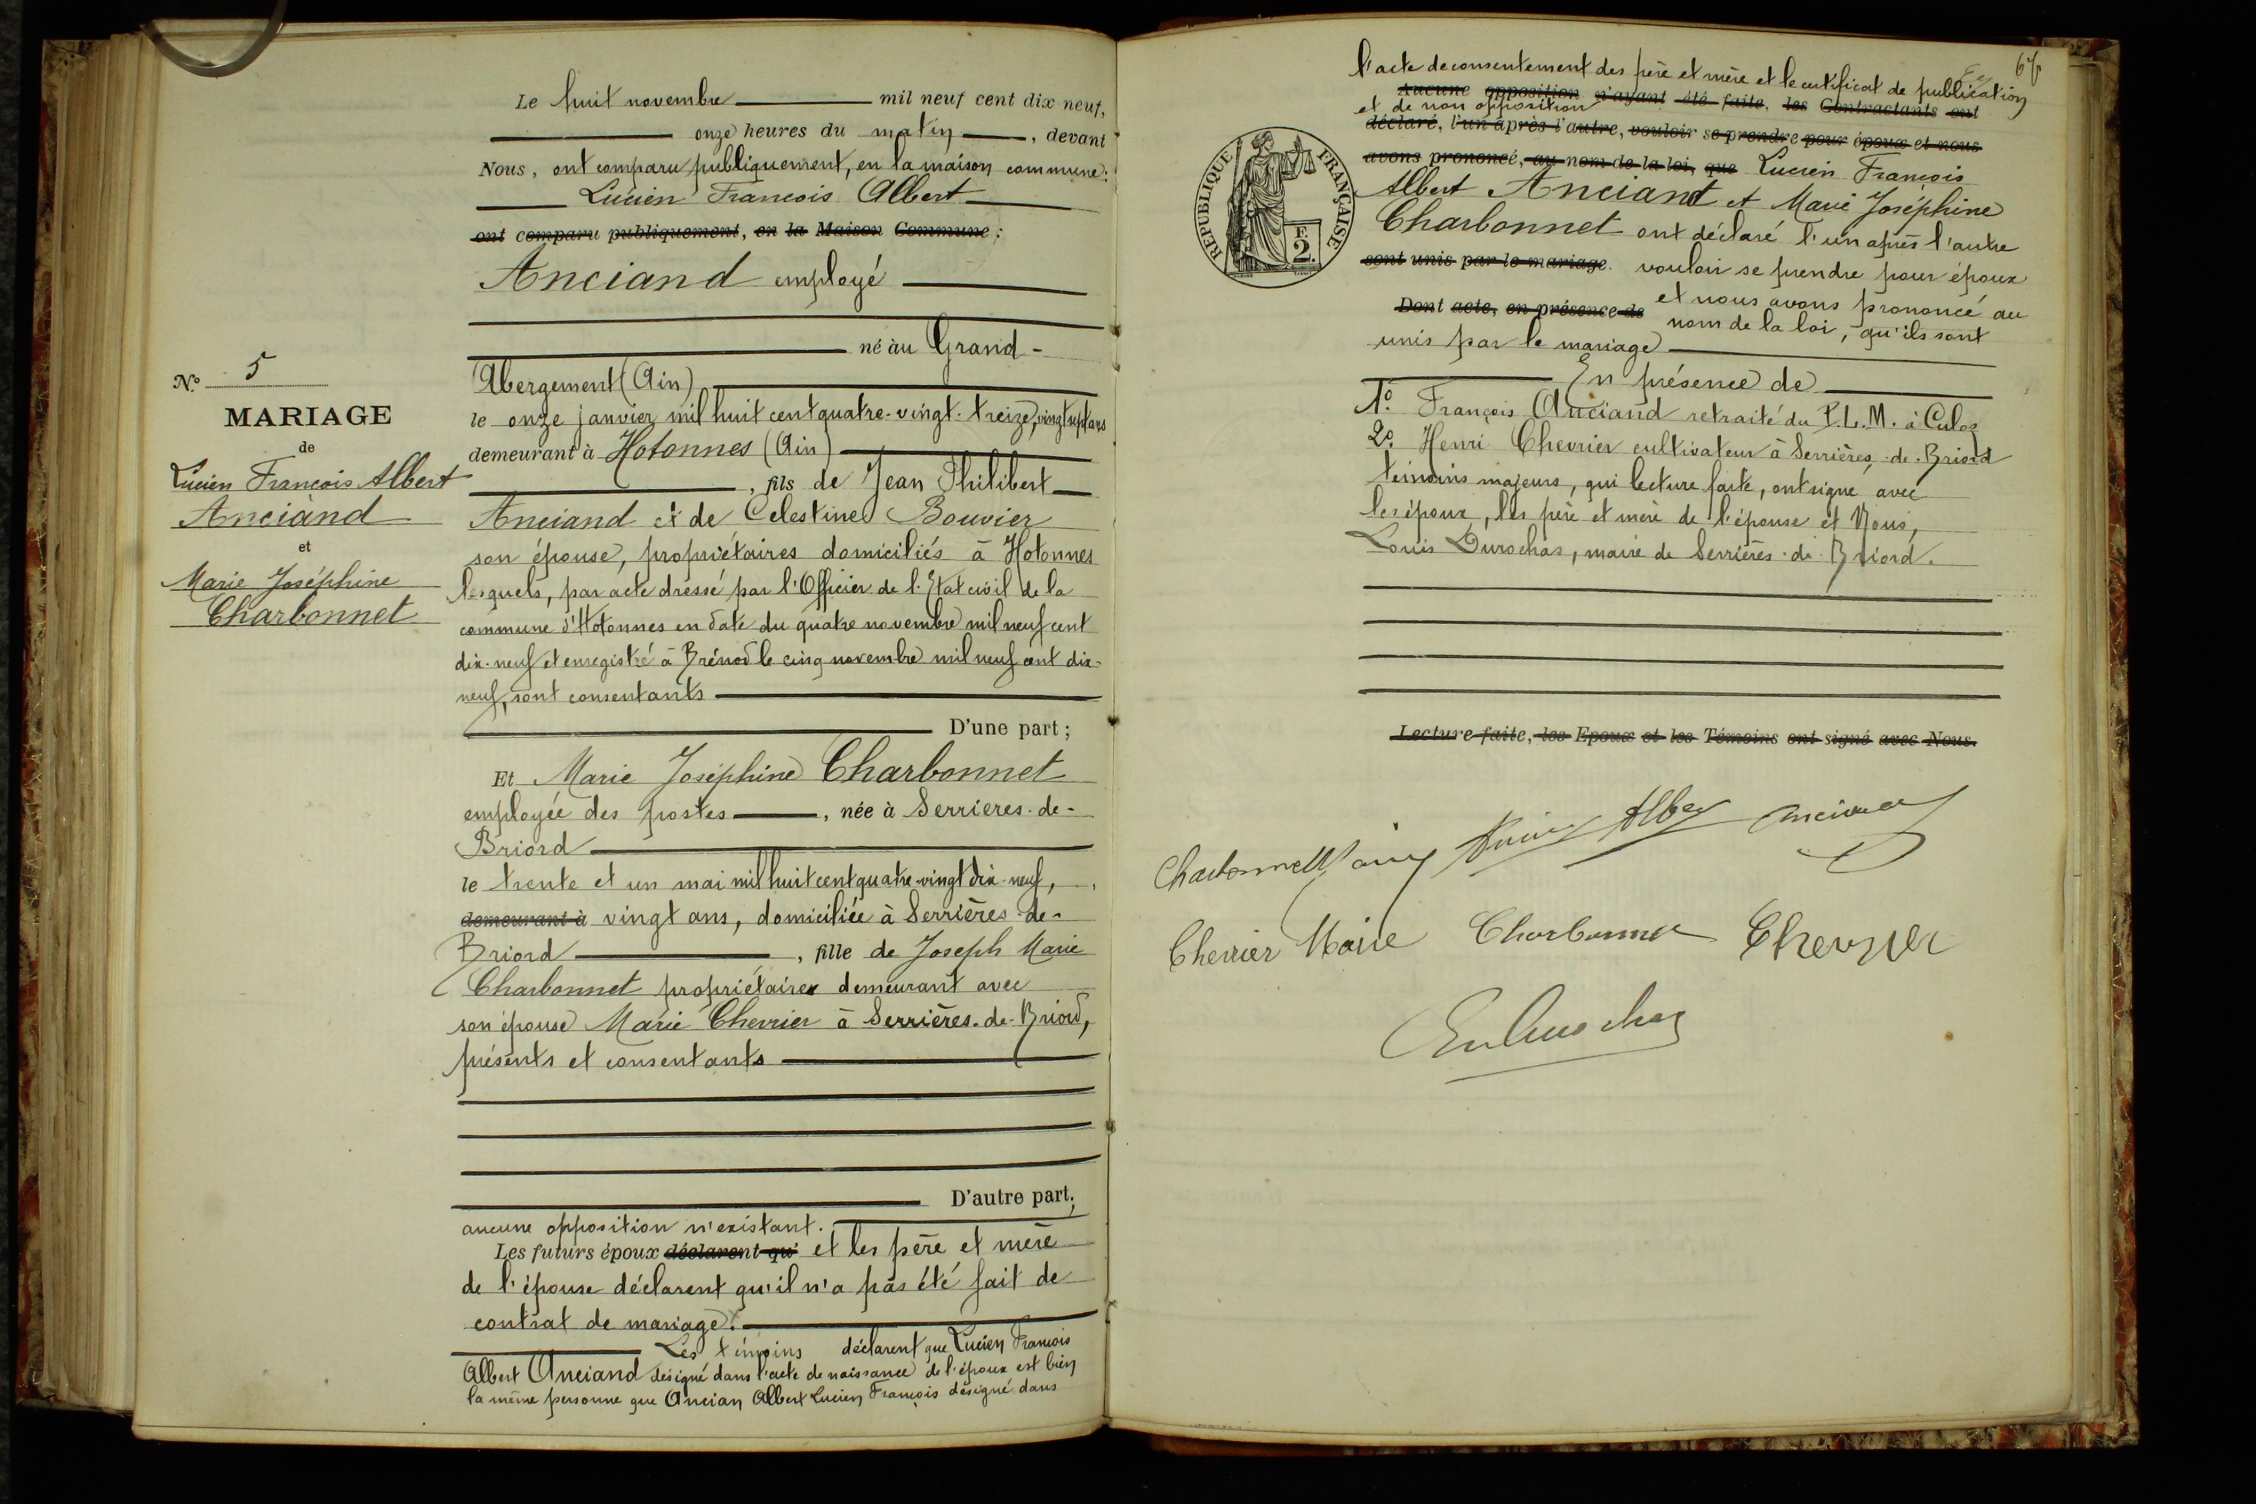 N.º 5
MARIAGE
de
Lucien François Albert
Anciand
et
Marie Joséphine
Charbonnet
Le huit novembre mil neuf cent dix-neuf,
onze heures du matin, devant
Nous, ont comparu publiquement, en la maison commune:
Lucien François Albert
ont comparu publiquement, en la Maison Commune;
Anciand employé
né au Grand-
Abergement (Ain)
le onze janvier mil huit cent quatre-vingt-treize, vingt sept ans
demeurant à Hotonnes (Ain)
, fils de Jean Philibert
Anciand et de Celestine Bouvier
son épouse, propriétaires domiciliés à Hotonnes
lesquels, par acte dressé par l'Officier de l'Etat civil de la
commune d'Hotonnes en date du quatre novembre mil neuf cent
dix-neuf et enregistré à Brénod le cinq novembre mil neuf cent dix-
neuf, sont consentants
D'une part;
Et Marie Joséphine Charbonnet
employée des postes, née à Serrieres-de-
Briord
le trente et un mai mil huit cent quatre-vingt dix-neuf,
demeurant à vingt ans, domiciliée à Serrières-de-
Briord, fille de Joseph Marie
Charbonnet propriétaire demeurant avec
son épouse Marie Chevrier à Serrières-de-Briord,
présents et consentants
D'autre part;
aucune opposition n'existant.
Les futurs époux déclarent qu' et les père et mère
de l'épouse déclarent qu'il n'a pas été fait de
contrat de mariage.
Les témoins déclarent que Lucien François
Albert Anciand désigné dans l'acte de naissance de l'époux est bien
la même personne que Ancian Albert Lucien François désigné dans
67
l'acte de consentement des père et mère et le certificat de publication
Aucune opposition n'ayant été faite, les Contractants ont
et de non opposition
déclaré, l'un après l'autre, vouloir se prendre pour époux et nous
avons prononcé, au nom de la loi, que Lucien François
Albert Anciand et Marie Joséphine
Charbonnet ont déclaré l'un après l'autre
sont unis par le mariage. vouloir se prendre pour époux
et nous avons prononcé au
Dont acte, en présence de nom de la loi, qu'ils sont
unis par le mariage
RÉPUBLIQUE FRANÇAISE
F.
2.
En présence de
1º. François Anciand retraité du P.L.M. à Culoz
2º. Henri Chevrier cultivateur à Serrières-de-Briord
témoins majeurs, qui lecture faite, ont signé avec
les époux, les père et mère de l'épouse et Nous,
Louis Durochas, maire de Serrières-de-Briord.
Lecture faite, les Epoux et les Témoins ont signé avec Nous.
Charbonnet Albert Anciand
Chevrier Marie Charbonnet Chevrier